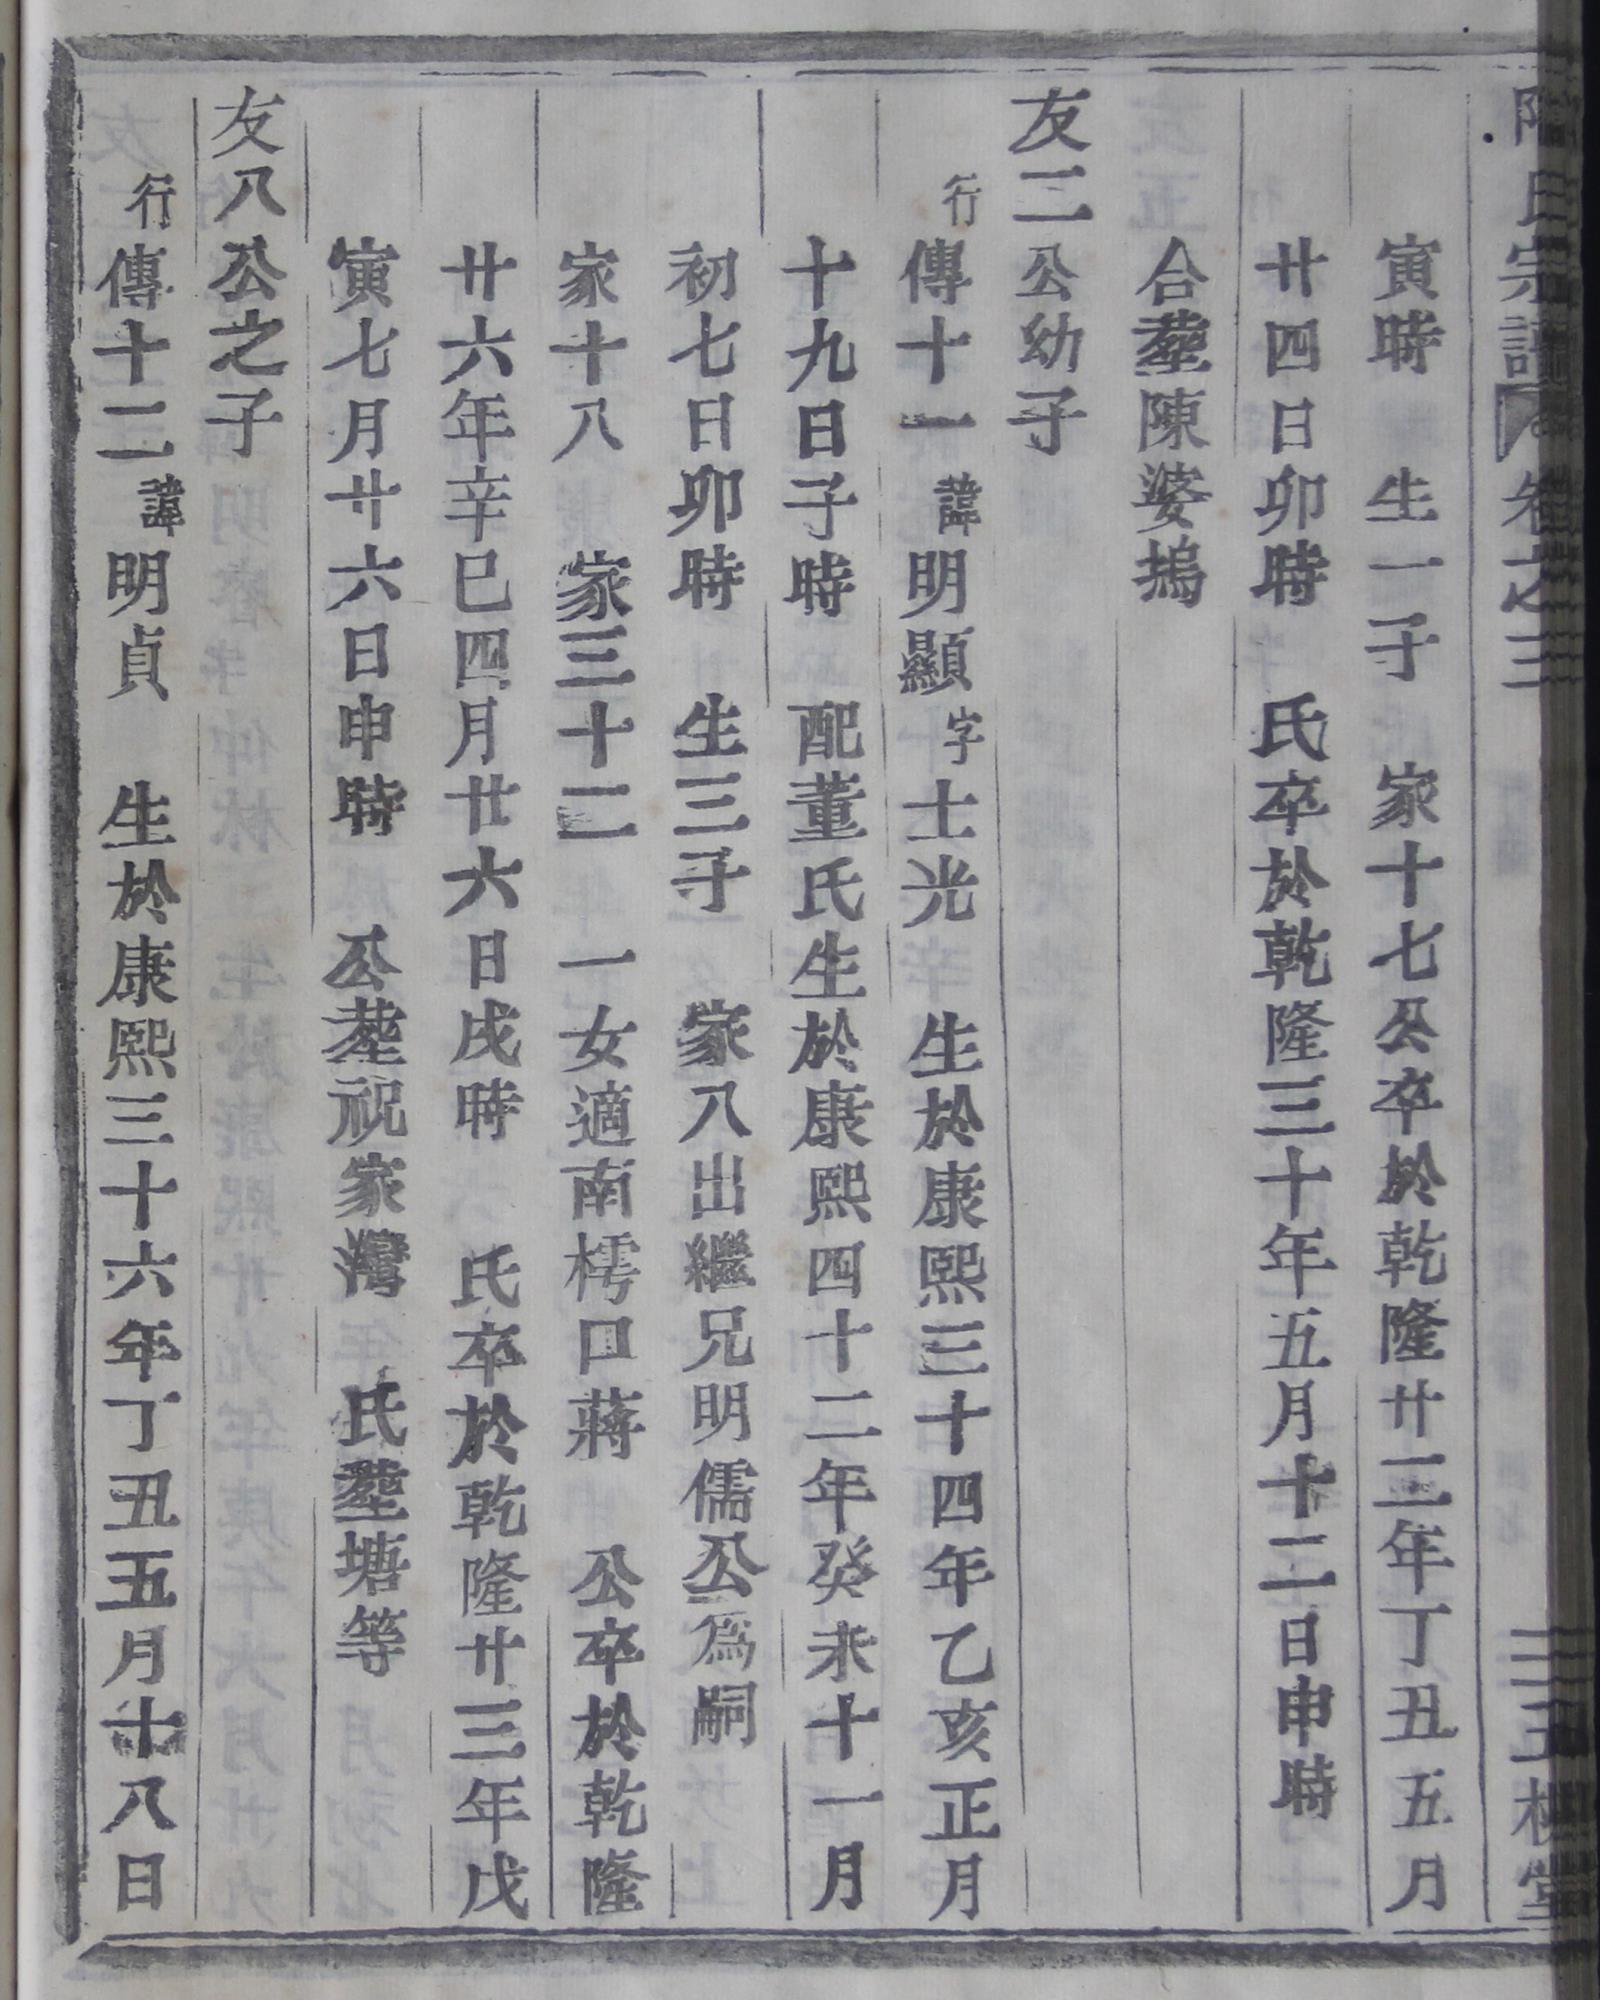 氏宗譜 卷之三 三五 堂
寅時 生一子 家十七公卒於乾隆廿二年丁丑五月
廿四日卯時 氏卒於乾隆三十年五月十二日申時
合塟陳婆塢
友二公幼子
行傳十一諱明顯字士光 生於康熙三十四年乙亥正月
十九日子時 配董氏生於康熙四十二年癸未十一月
初七日卯時 生三子 家八出繼兄明儒公為嗣
家十八 家三十二 一女適南樗口蔣 公卒於乾隆
廿六年辛巳四月廿六日戌時 氏卒於乾隆廿三年戊
寅七月廿六日申時 公塟祝家灣 氏塟塘等
友八公之子
行傳十二諱明貞 生於康熙三十六年丁丑五月十八日